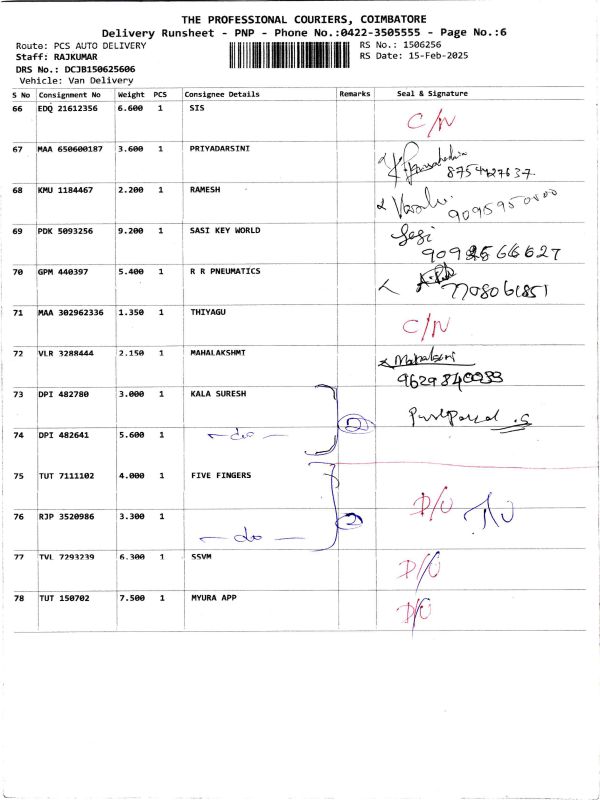 THE PROFESSIONAL COURIERS, COIMBATORE
Delivery Runsheet - PNP - Phone No.:0422-3505555 - Page No.:6
Route: PCS AUTO DELIVERY
RS No.: 1506256
Staff: RAJKUMAR
RS Date: 15-Feb-2025
DRS No.: DCJB150625606
Vehicle: Van Delivery
S No Consignment No Weight PCS Consignee Details Remarks Seal & Signature
66 EDQ 21612356 6.600 1 SIS C/N
67 MAA 650600187 3.600 1 PRIYADARSINI
8754427637
68 KMU 1184467 2.200 1 RAMESH
69 PDK 5093256 9.200 1 SASI KEY WORLD
70 GPM 440397 5.400 1 R R PNEUMATICS
7708061851
71 MAA 302962336 1.350 1 THIYAGU C/N
72 VLR 3288444 2.150 1 MAHALAKSHMI
73 DPI 482780 3.000 1 KALA SURESH
2
74 DPI 482641 5.600 1 -do-
75 TUT 7111102 4.000 1 FIVE FINGERS
D/U
76 RJP 3520986 3.300 1 -do- 2
77 TVL 7293239 6.300 1 SSVM D/U
78 TUT 150702 7.500 1 MYURA APP D/U